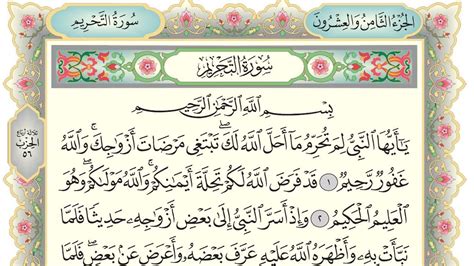 الجزء الثامن والعشرون
سورة التحريم
سُورَةُ التَّحْرِيمِ
بِسْمِ اللَّهِ الرَّحْمَٰنِ الرَّحِيمِ
يَٰٓأَيُّهَا ٱلنَّبِىُّ لِمَ تُحَرِّمُ مَآ أَحَلَّ ٱللَّهُ لَكَ ۖ تَبْتَغِى مَرْضَاتَ أَزْوَٰجِكَ ۚ وَٱللَّهُ
غَفُورٌ رَّحِيمٌ ١ قَدْ فَرَضَ ٱللَّهُ لَكُمْ تَحِلَّةَ أَيْمَٰنِكُمْ ۚ وَٱللَّهُ مَوْلَىٰكُمْ ۖ وَهُوَ
ٱلْعَلِيمُ ٱلْحَكِيمُ ٢ وَإِذْ أَسَرَّ ٱلنَّبِىُّ إِلَىٰ بَعْضِ أَزْوَٰجِهِۦ حَدِيثًا فَلَمَّا
نَبَّأَتْ بِهِۦ وَأَظْهَرَهُ ٱللَّهُ عَلَيْهِ عَرَّفَ بَعْضَهُۥ وَأَعْرَضَ عَنۢ بَعْضٍ ۖ فَلَمَّا
ثلاثة أرباع
الحزب
٥٦